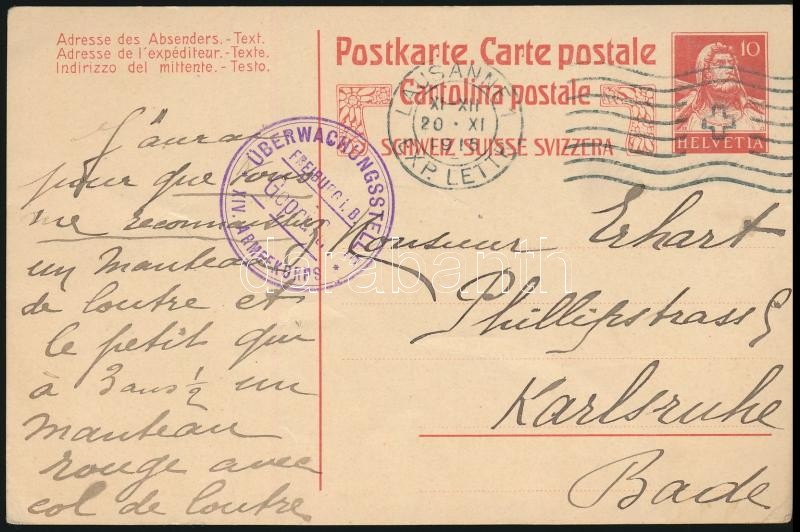 Adresse des Absenders.-Text.
Adresse de l'expéditeur.-Texte.
Indirizzo del mittente.-Testo.
Postkarte. Carte postale
Cartolina postale
SCHWEIZ SUISSE SVIZZERA
10
HELVETIA
LAUSANNE 1
XI-XII
20·XI
EXP. LETTR.
ÜBERWACHUNGSSTELLE
FREIBURG i. B.
Geprüft
XIV. ARMEEKORPS *
J'aurai
pour que vous
me reconnaissiez
un manteau
de loutre et
le petit qui
a 3 ans ½ un
manteau
rouge avec
col de loutre
Monsieur Erhart
Phillipstrasse
Karlsruhe
Bade
darabanth